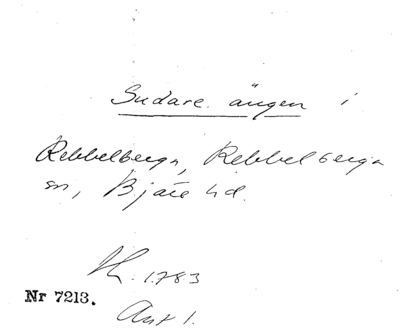 Sudare ängen i
Rebbelberga, Rebbelberga
sn, Bjäre hd.
1783
Nr 7213.
Akt 1.